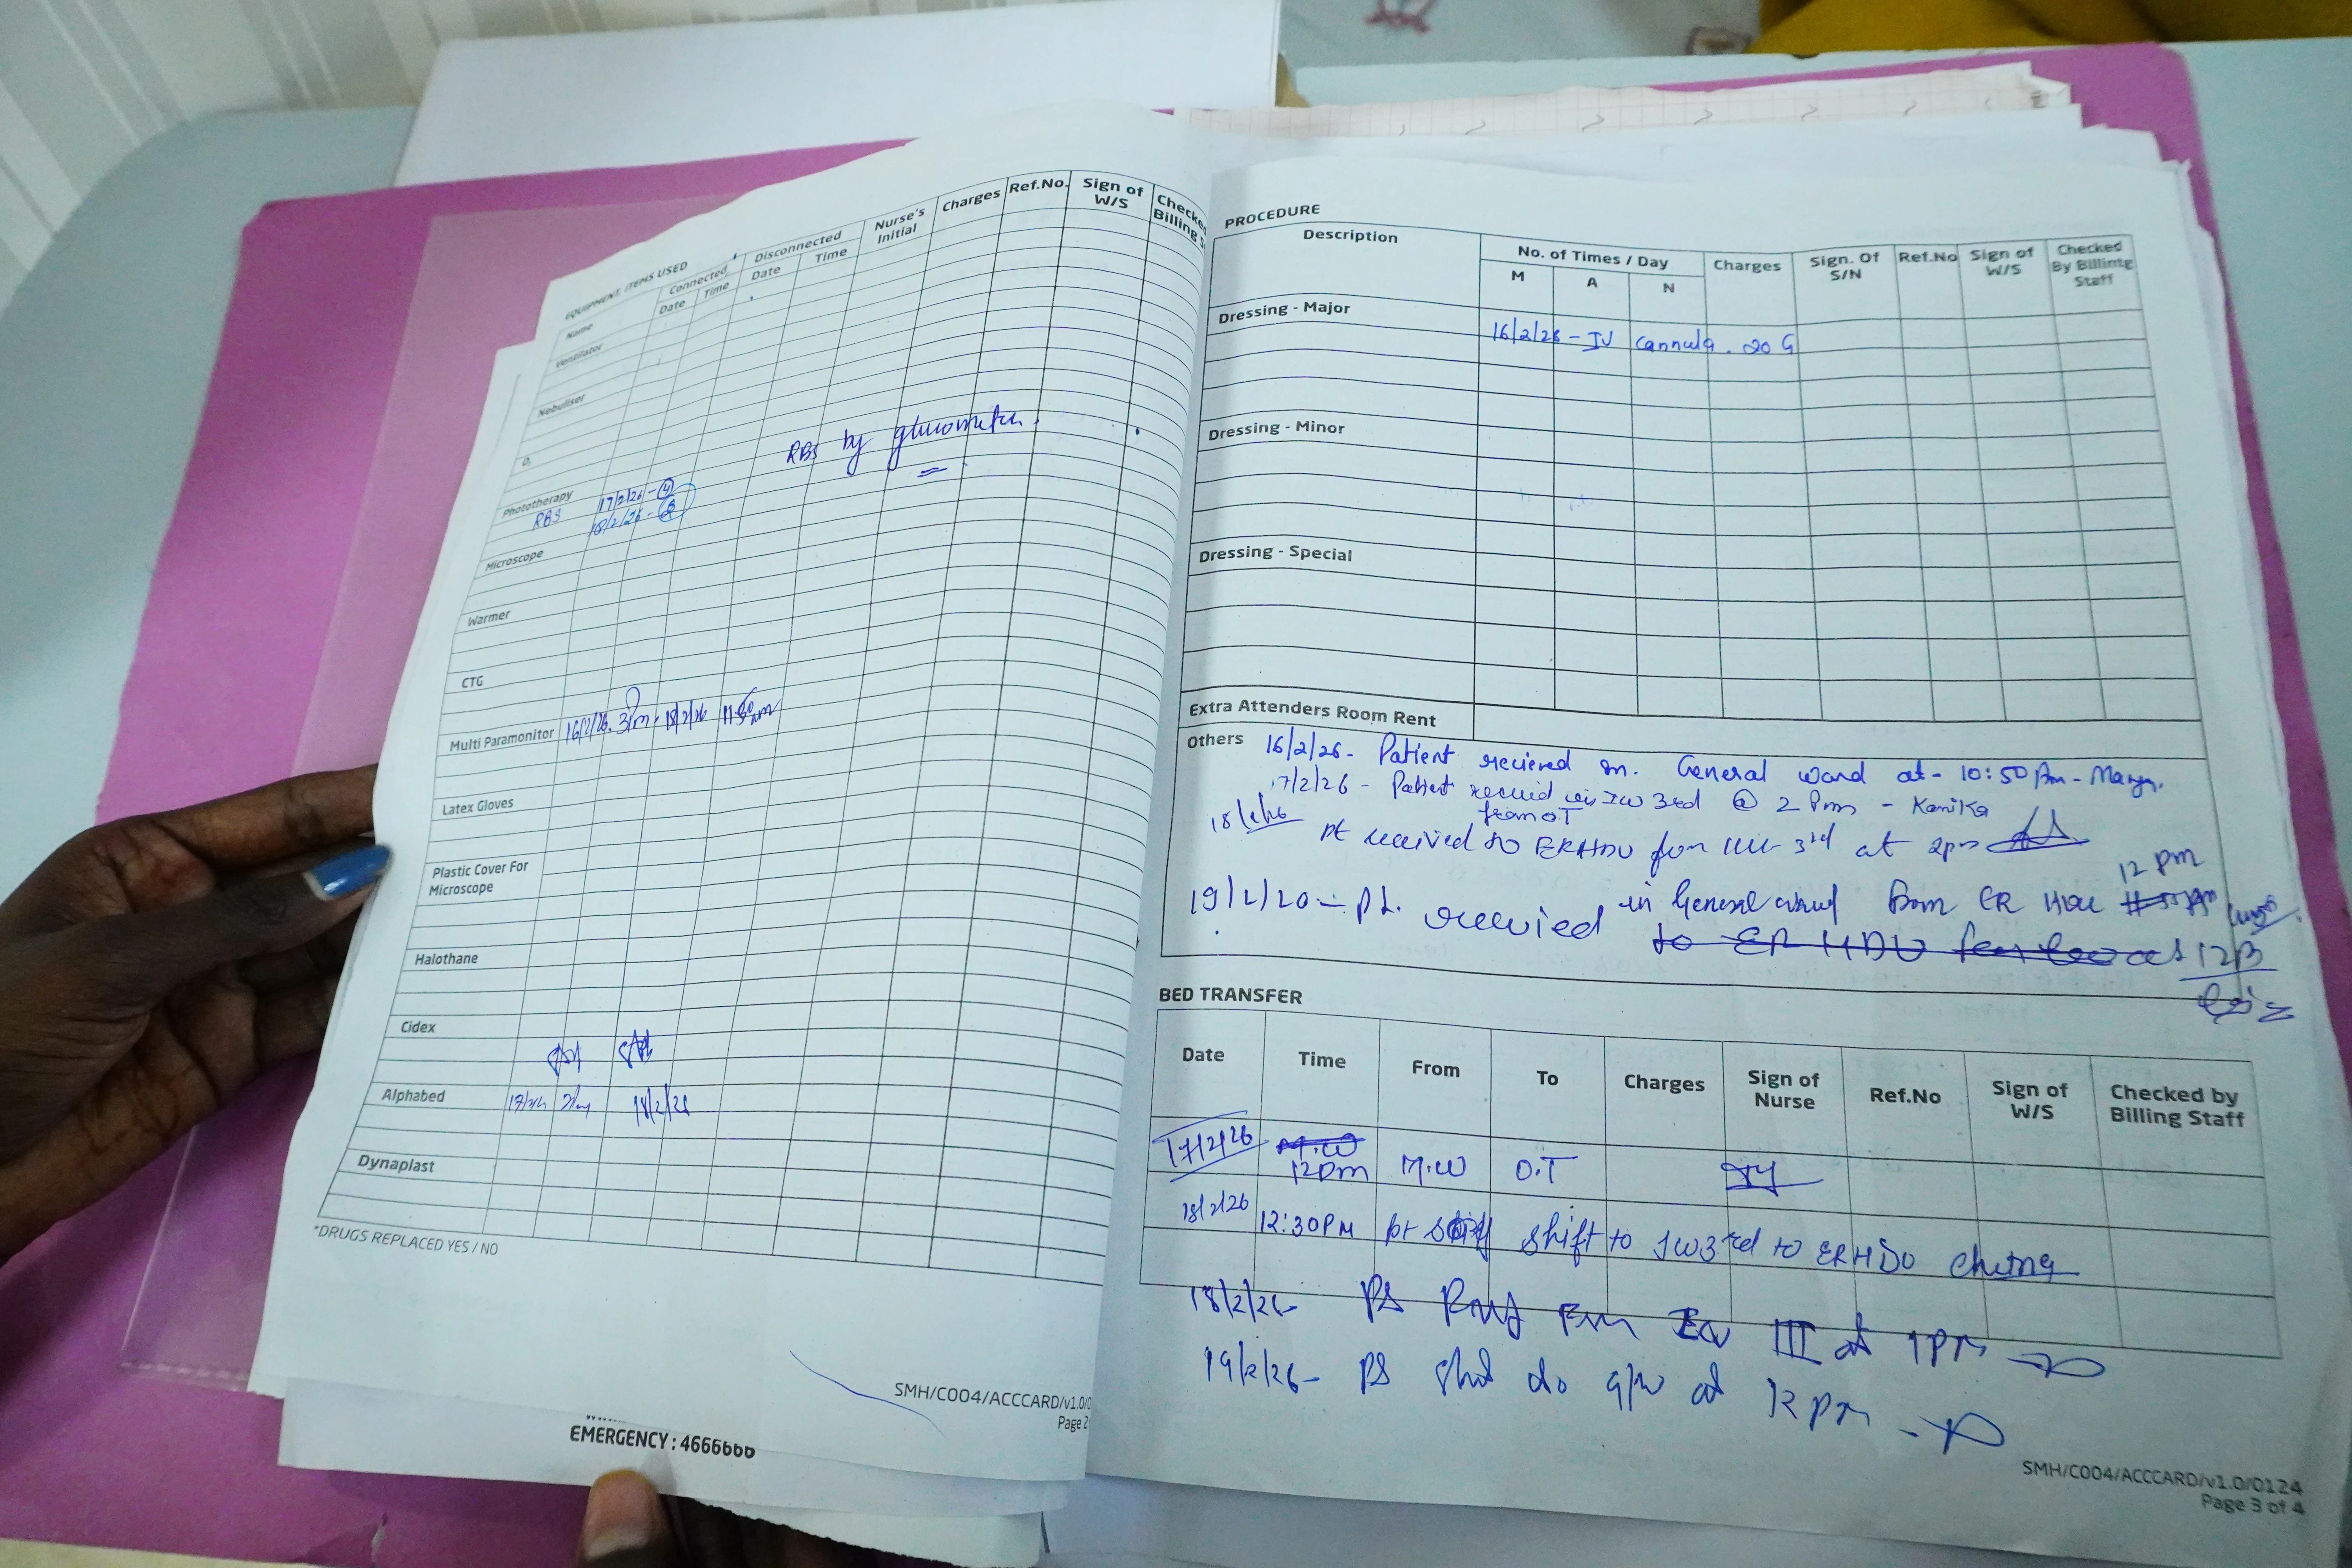 EQUIPMENT, ITEMS USED
Name Connected Disconnected Nurse's Initial Charges Ref.No. Sign of W/S Checke Billing S
Date Time Date Time
Ventilator
Nebuliser
O,
RBS by glucometer.
Phototherapy 17/2/26 - 4
RBS 18/2/26 -
Microscope
Warmer
CTG
Multi Paramonitor 16/2/26. 3Pm. 18/2/26 11:50 am
Latex Gloves
Plastic Cover For
Microscope
Halothane
Cidex
Alphabed 18/2/26
Dynaplast
*DRUGS REPLACED YES / NO
SMH/C004/ACCCARD/v1.0/0
Page 2
EMERGENCY : 4666666
PROCEDURE
Description No. of Times / Day Charges Sign. Of S/N Ref.No Sign of W/S Checked By Billintg Staff
M A N
Dressing - Major
16/2/26 - IV Cannula. 20 G
Dressing - Minor
Dressing - Special
Extra Attenders Room Rent
Others 16/2/26 - Patient recieved in. General ward at - 10:50 Am -
17/2/26 - Patient 3rd @ 2 Pm - Kanika
from OT
Pt received to ERHDU from 3rd at 2pm
12 pm
19/2/20 - Pt. recevied in General ward from ER HDU
to ER HDU
BED TRANSFER
Date Time From To Charges Sign of Nurse Ref.No Sign of W/S Checked by Billing Staff
17/2/26 M.W 12pm M.W O.T
18/2/26 12:30PM pt shift to IW3rd to ERHDU
18/2/26 - III at 1 PM
19/2/26 - at 12 PM
SMH/C004/ACCCARD/v1.0/0124
Page 3 of 4